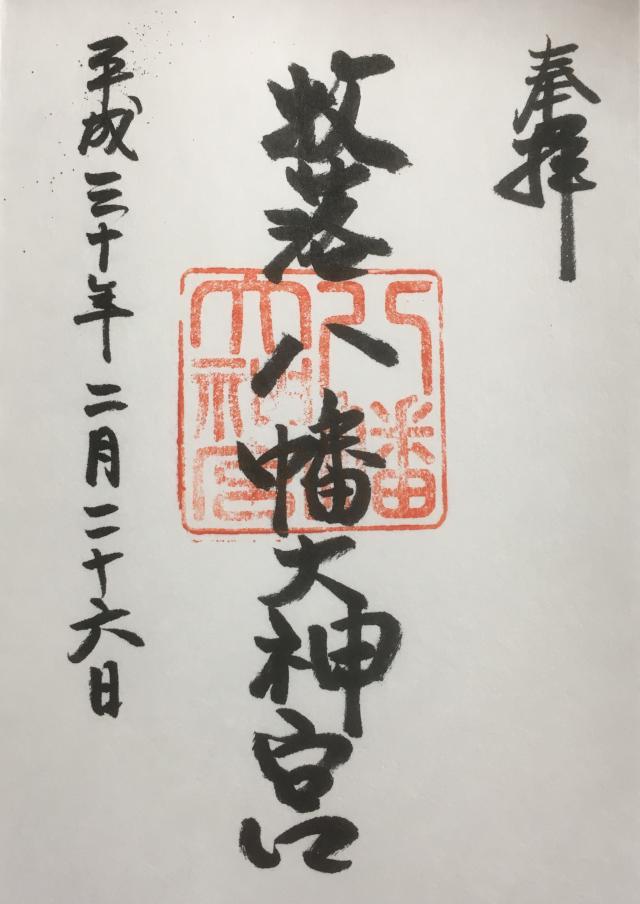 奉拝
牧落八幡大神宮
八幡
大神宮
平成三十年二月二十六日